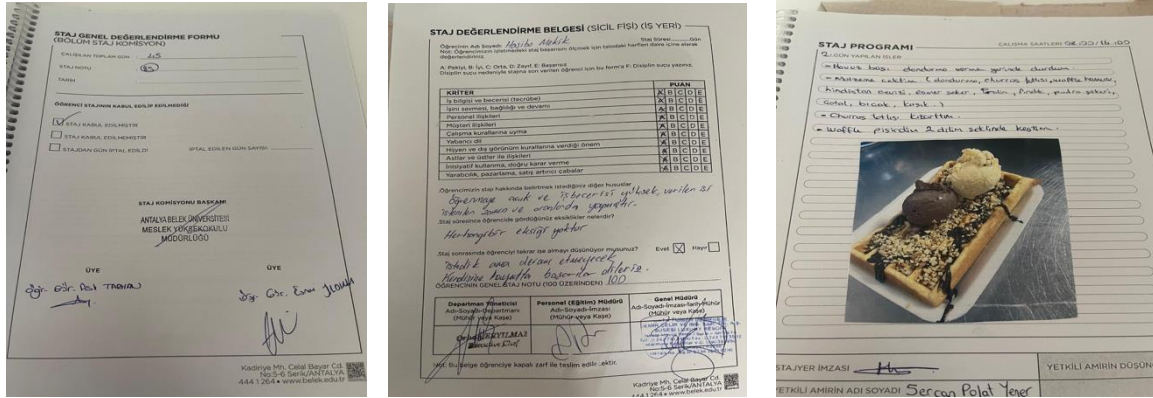 STAJ GENEL DEĞERLENDİRME FORMU
(BÖLÜM STAJ KOMİSYON)
ÇALIŞILAN TOPLAM GÜN : 45
STAJ NOTU
TARİH
ÖĞRENCİ STAJININ KABUL EDİLİP EDİLMEDİĞİ
STAJ KABUL EDİLMİŞTİR
STAJ KABUL EDİLMEMİŞTİR
STAJDAN GÜN İPTAL EDİLDİ İPTAL EDİLEN GÜN SAYISI:
STAJ KOMİSYONU BAŞKANI
ANTALYA BELEK ÜNİVERSİTESİ
MESLEK YÜKSEKOKULU
MÜDÜRLÜĞÜ
ÜYE
ÜYE
Öğr. Gör.
Öğr. Gör.
Kadriye Mh. Celal Bayar Cd.
No:5-6 Serik/ANTALYA
444 1 264 • www.belek.edu.tr
STAJ DEĞERLENDİRME BELGESİ (SİCİL FİŞİ) (İŞ YERİ)
Öğrencinin Adı Soyadı: Staj Süresi: Gün
Not: Öğrencimizin işletmedeki staj başarısını ölçmek için tablodaki harfleri daire içine alarak
değerlendiriniz.
A: Pekiyi, B: İyi, C: Orta, D: Zayıf, E: Başarısız
Disiplin suçu nedeniyle stajına son verilen öğrenci için bu form'a F: Disiplin suçu yazınız.
KRİTER PUAN
İş bilgisi ve becerisi (tecrübe) A B C D E
İşini sevmesi, bağlılığı ve devamı A B C D E
Personel ilişkileri A B C D E
Müşteri ilişkileri A B C D E
Çalışma kurallarına uyma A B C D E
Yabancı dil A B C D E
Hijyen ve dış görünüm kurallarına verdiği önem A B C D E
Astlar ve üstler ile ilişkileri A B C D E
İnisiyatif kullanma, doğru karar verme A B C D E
Yaratıcılık, pazarlama, satış artırıcı çabalar A B C D E
Öğrencimizin staj hakkında belirtmek istediğiniz diğer hususlar
Öğrenmeye açık ve iş becerisi yüksek, verilen işi
istenilen zaman ve oranlarda yapmıştır.
Staj süresince öğrencide gördüğünüz eksiklikler nelerdir?
Herhangibir eksiği yoktur
Staj sonrasında öğrenciyi tekrar işe almayı düşünüyor musunuz? Evet Hayır
istedik ama devam etmeyecek
Kendisine hayatta başarılar dileriz.
ÖĞRENCİNİN GENEL STAJ NOTU (100 ÜZERİNDEN) 100
Departman Yöneticisi
Adı-Soyadı-Departmanı
(Mühür veya Kaşe)
Personel (Eğitim) Müdürü
Adı-Soyadı-İmzası
(Mühür veya Kaşe)
Genel Müdürü
Adı-Soyadı-İmzası-Tarih/Mühür
(Mühür veya Kaşe)
Executive Chef
Not: Bu belge öğrenciye kapalı zarf ile teslim edilecektir.
Kadriye Mh. Celal Bayar Cd.
No:5-6 Serik/ANTALYA
444 1 264 • www.belek.edu.tr
STAJ PROGRAMI ÇALIŞMA SAATLERİ 08.00/16.00
2.GÜN YAPILAN İŞLER
- Havuz başı dondurma verme yerinde durdum.
- Malzeme çektim (dondurma, churros tatlısı, waffle hamuru,
hindistan cevizi, esmer şeker, fındık, pudra şekeri,
çatal, bıçak, kaşık.)
- Churros tatlısı kızarttım.
- Waffle pişirdim 2 dilim şeklinde kestim.
STAJYER İMZASI
YETKİLİ AMİRİN DÜŞÜN
YETKİLİ AMİRİN ADI SOYADI Sercan Polat Yener